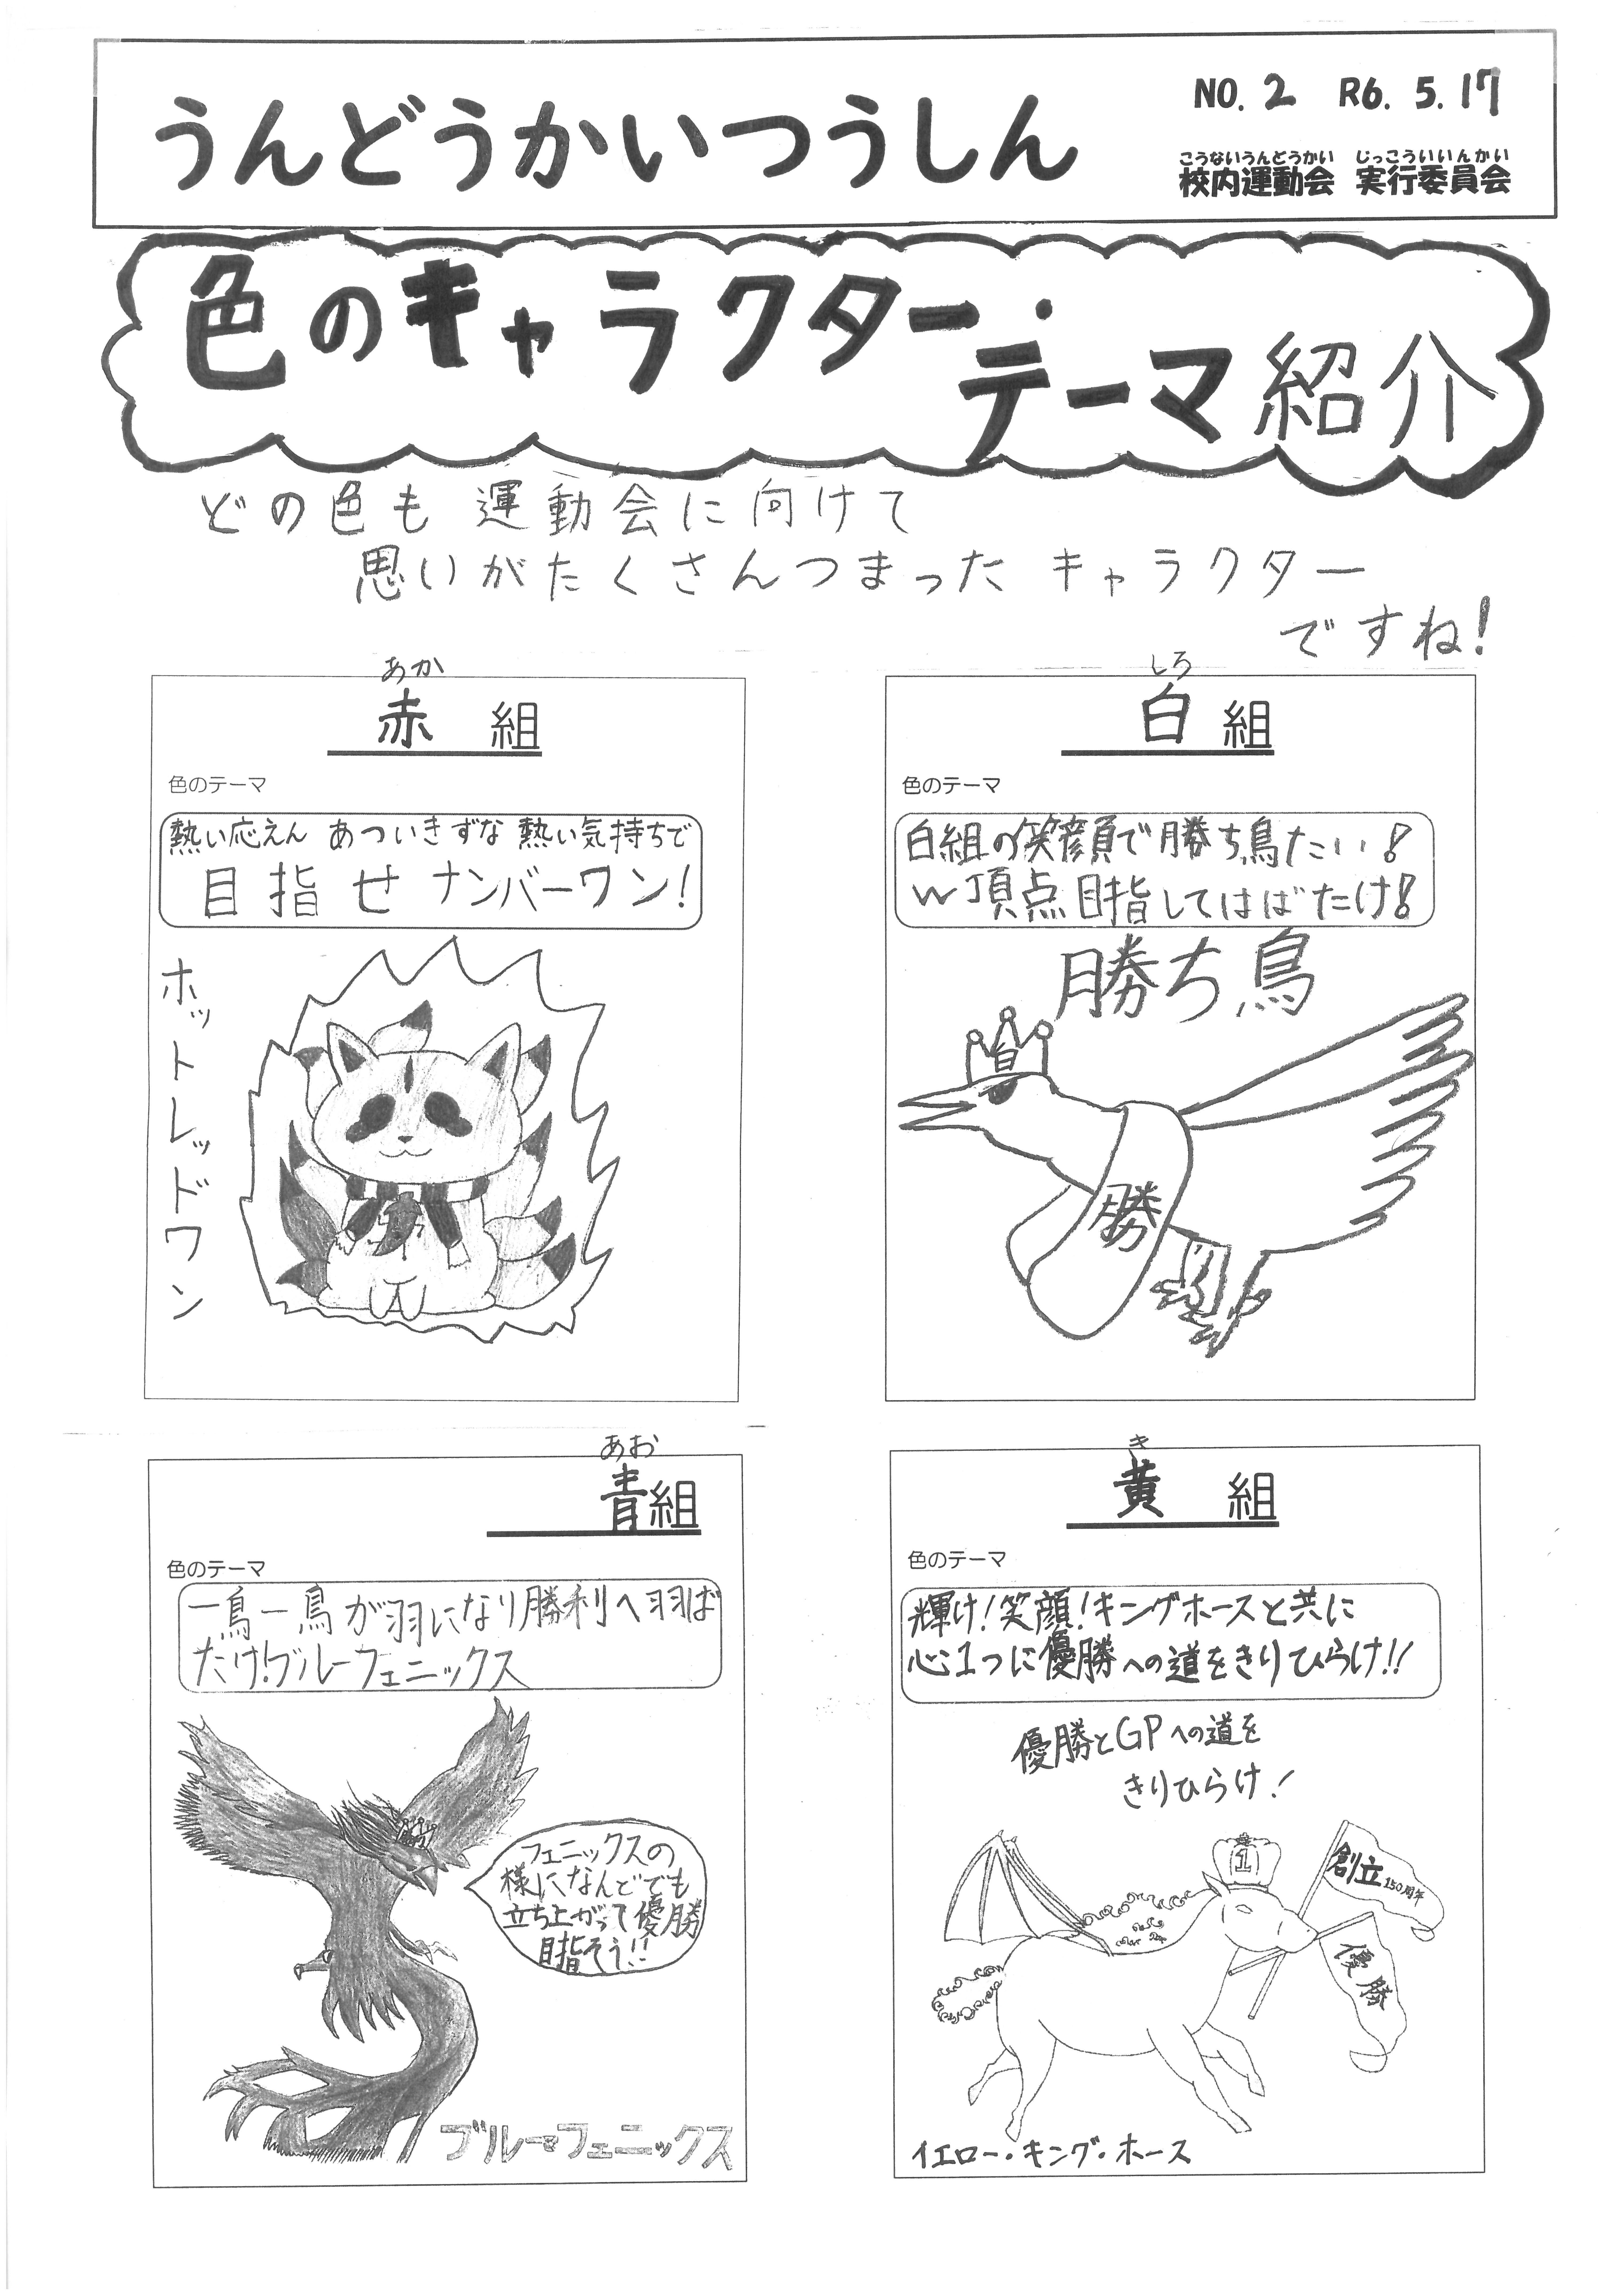 うんどうかいつうしん
NO. 2 R6. 5. 17
こうないうんどうかい じっこういいんかい
校内運動会 実行委員会
色のキャラクター・
テーマ紹介
どの色も 運動会に向けて
思いがたくさんつまった キャラクター
ですね!
あか
赤 組
色のテーマ
熱い応えん あついきずな 熱い気持ちで
目指せ ナンバーワン!
ホットレッドワン
しろ
白 組
色のテーマ
白組の笑顔で勝ち鳥たい!
W頂点目指してはばたけ!
勝ち鳥
白
勝
あお
青組
色のテーマ
一鳥一鳥が羽になり勝利へ羽ば
たけ!ブルーフェニックス
フェニックスの
様になんどでも
立ち上がって優勝
目指そう!!
ブルーフェニックス
き
黄 組
色のテーマ
輝け!笑顔!キングホースと共に
心1つに優勝への道をきりひらけ!!
優勝とGPへの道を
きりひらけ!
1
創立150周年
優勝
イエロー・キング・ホース